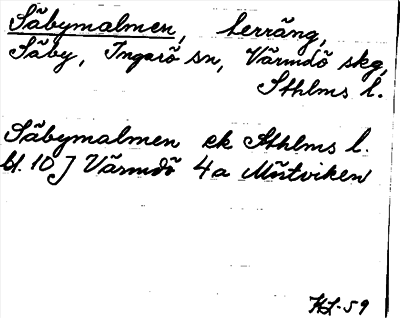 Säbymalmen, terräng,
Säby, Ingarö sn, Värmdö skg,
Sthlms l.
Säbymalmen ek Sthlms l.
bl. 10 J Värmdö 4a Mörtviken
HJ-59